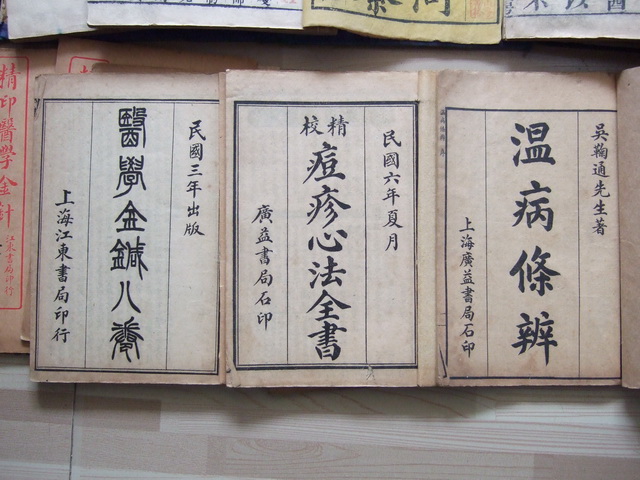 吳鞠通先生著
温病條辨
上海廣益書局石印
民國六年夏月
精校
痘疹心法全書
廣益書局石印
民國三年出版
醫學金鍼八卷
上海江東書局印行
精印醫學金針
江東書局印行